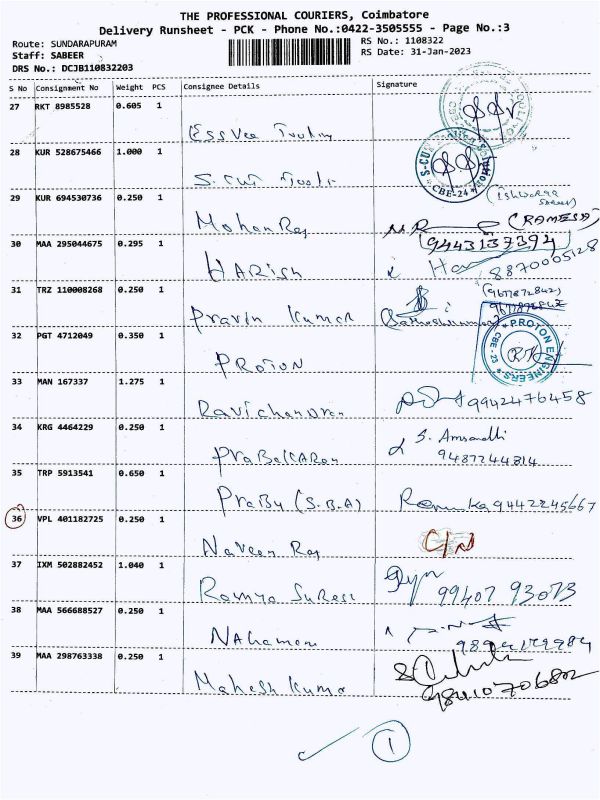 THE PROFESSIONAL COURIERS, Coimbatore
Delivery Runsheet - PCK - Phone No.:0422-3505555 - Page No.:3
Route: SUNDARAPURAM
RS No.: 1108322
Staff: SABEER
RS Date: 31-Jan-2023
DRS No.: DCJB110832203
S No Consignment No Weight PCS Consignee Details Signature
27 RKT 8985528 0.605 1
Essvee
28 KUR 528675466 1.000 1
S.CUT Tools
S-CUT
CBE-24
29 KUR 694530736 0.250 1
Mohan Raj
(RAMESH)
9443137394
30 MAA 295044675 0.295 1
HARISH
8870005128
31 TRZ 110008268 0.250 1
Pravin Kumar
32 PGT 4712049 0.350 1
PROTON
PROTON ENGINEERS
CBE-23
33 MAN 167337 1.275 1
Ravichandran
9942476458
34 KRG 4464229 0.250 1
PraBakaran
9487244314
35 TRP 5913541 0.650 1
PraBu (S.B.A)
Renuka 9442245667
36 VPL 401182725 0.250 1
Naveen Raj
37 IXM 502882452 1.040 1
Ramya Suresh
99407 93073
38 MAA 566688527 0.250 1
39 MAA 298763338 0.250 1
Mahesh Kumar
1